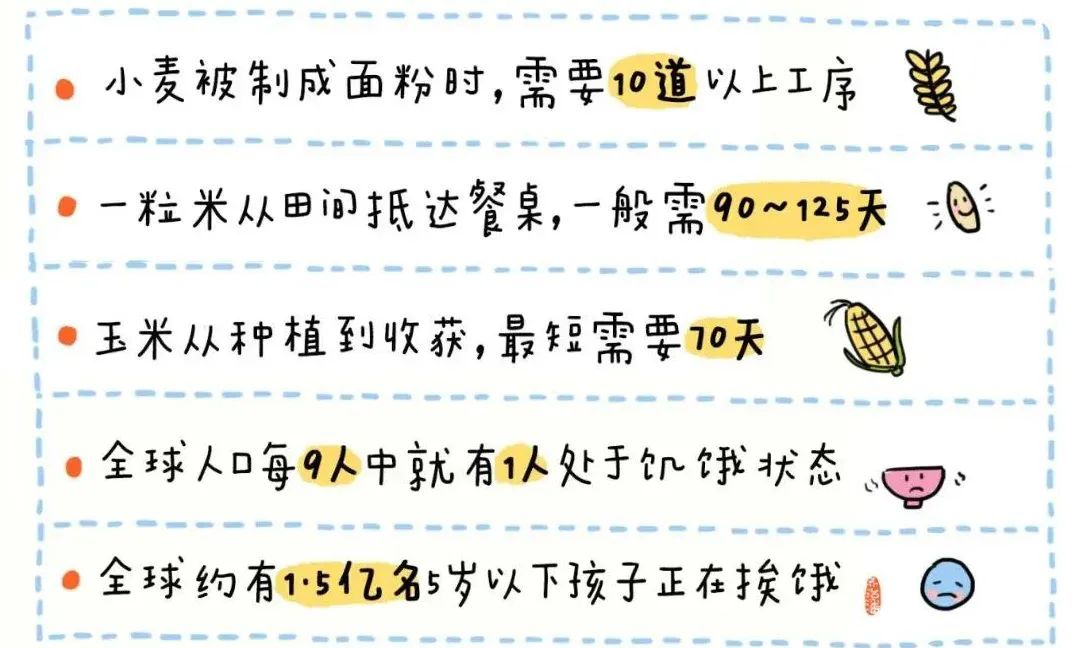 小麦被制成面粉时,需要10道以上工序
一粒米从田间抵达餐桌,一般需90~125天
玉米从种植到收获,最短需要70天
全球人口每9人中就有1人处于饥饿状态
全球约有1.5亿名5岁以下孩子正在挨饿